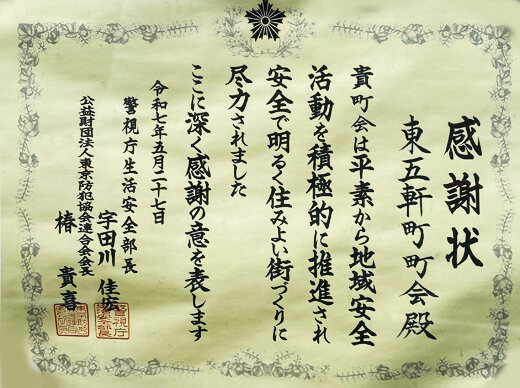 感謝状
東五軒町町会殿
貴町会は平素から地域安全
活動を積極的に推進され
安全で明るく住みよい街づくりに
尽力されました
ここに深く感謝の意を表します
令和七年五月二十七日
警視庁生活安全部長
宇田川佳宏
公益財団法人東京防犯協会連合会会長
椿貴喜